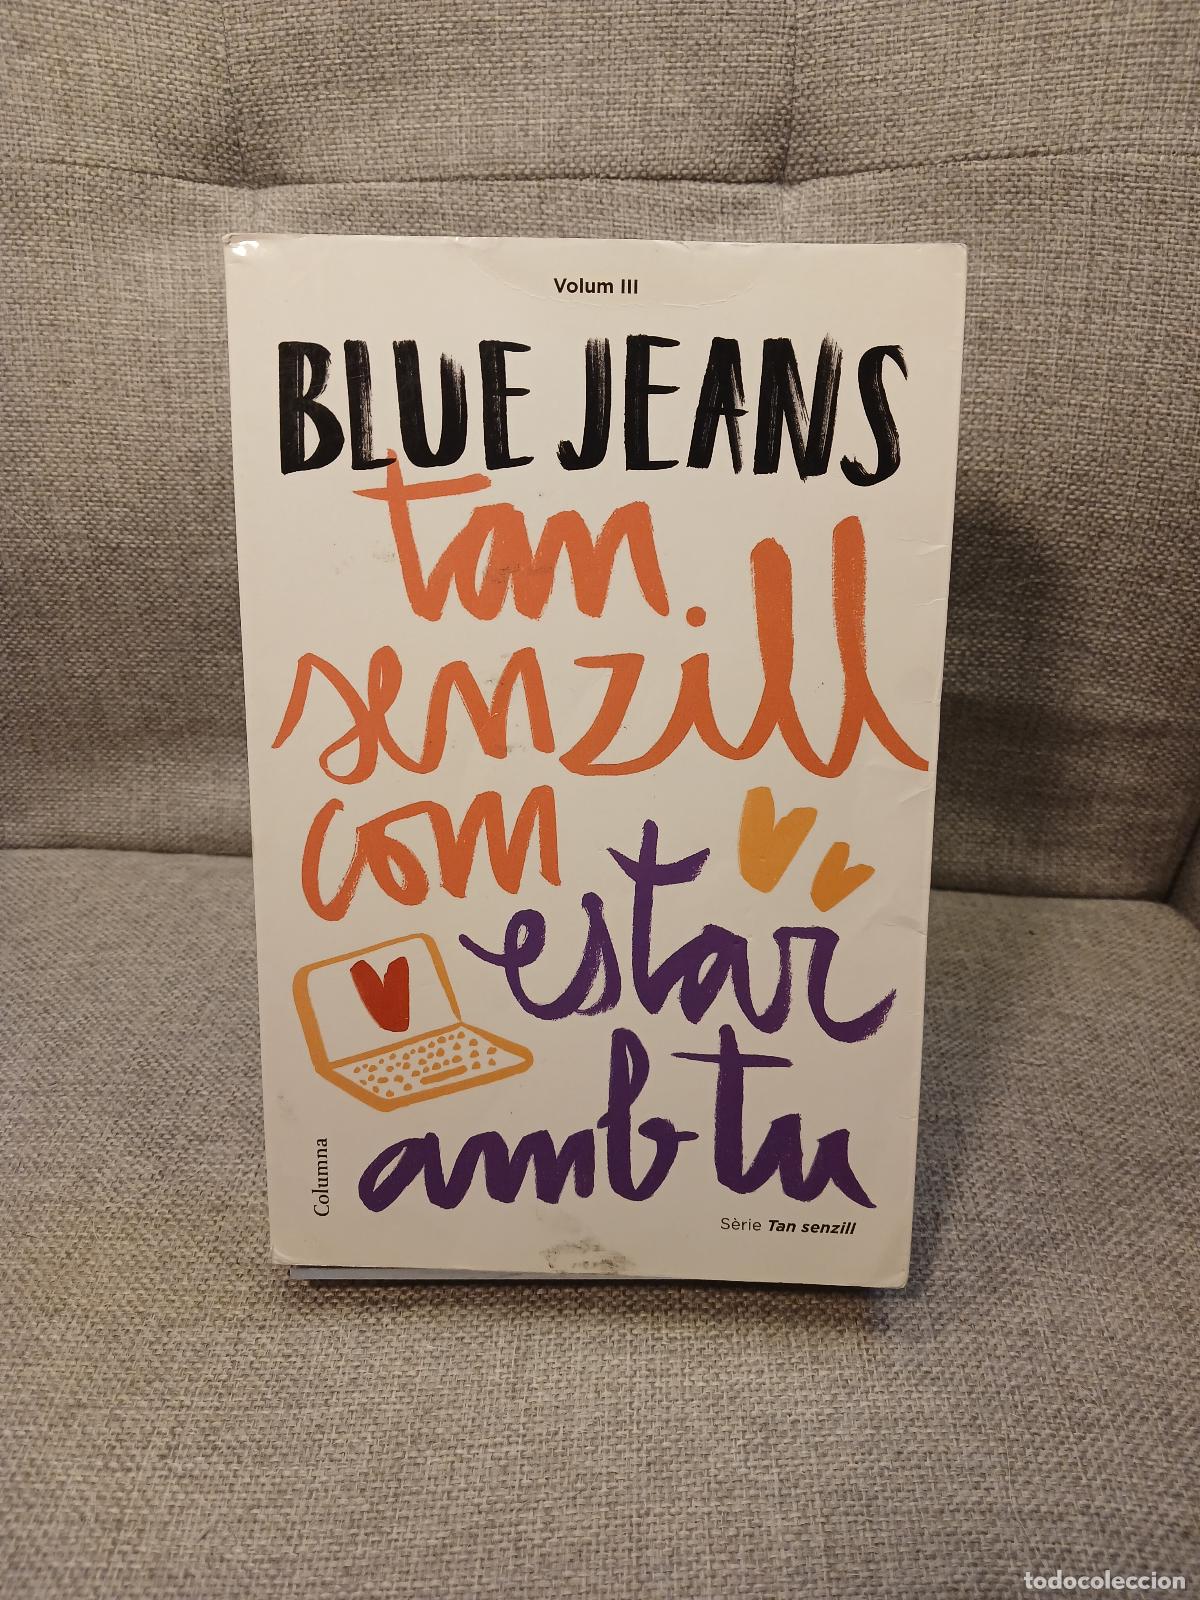 Volum III
BLUE JEANS
tan
senzill
com
estar
amb tu
Columna
Sèrie Tan senzill
todocoleccion